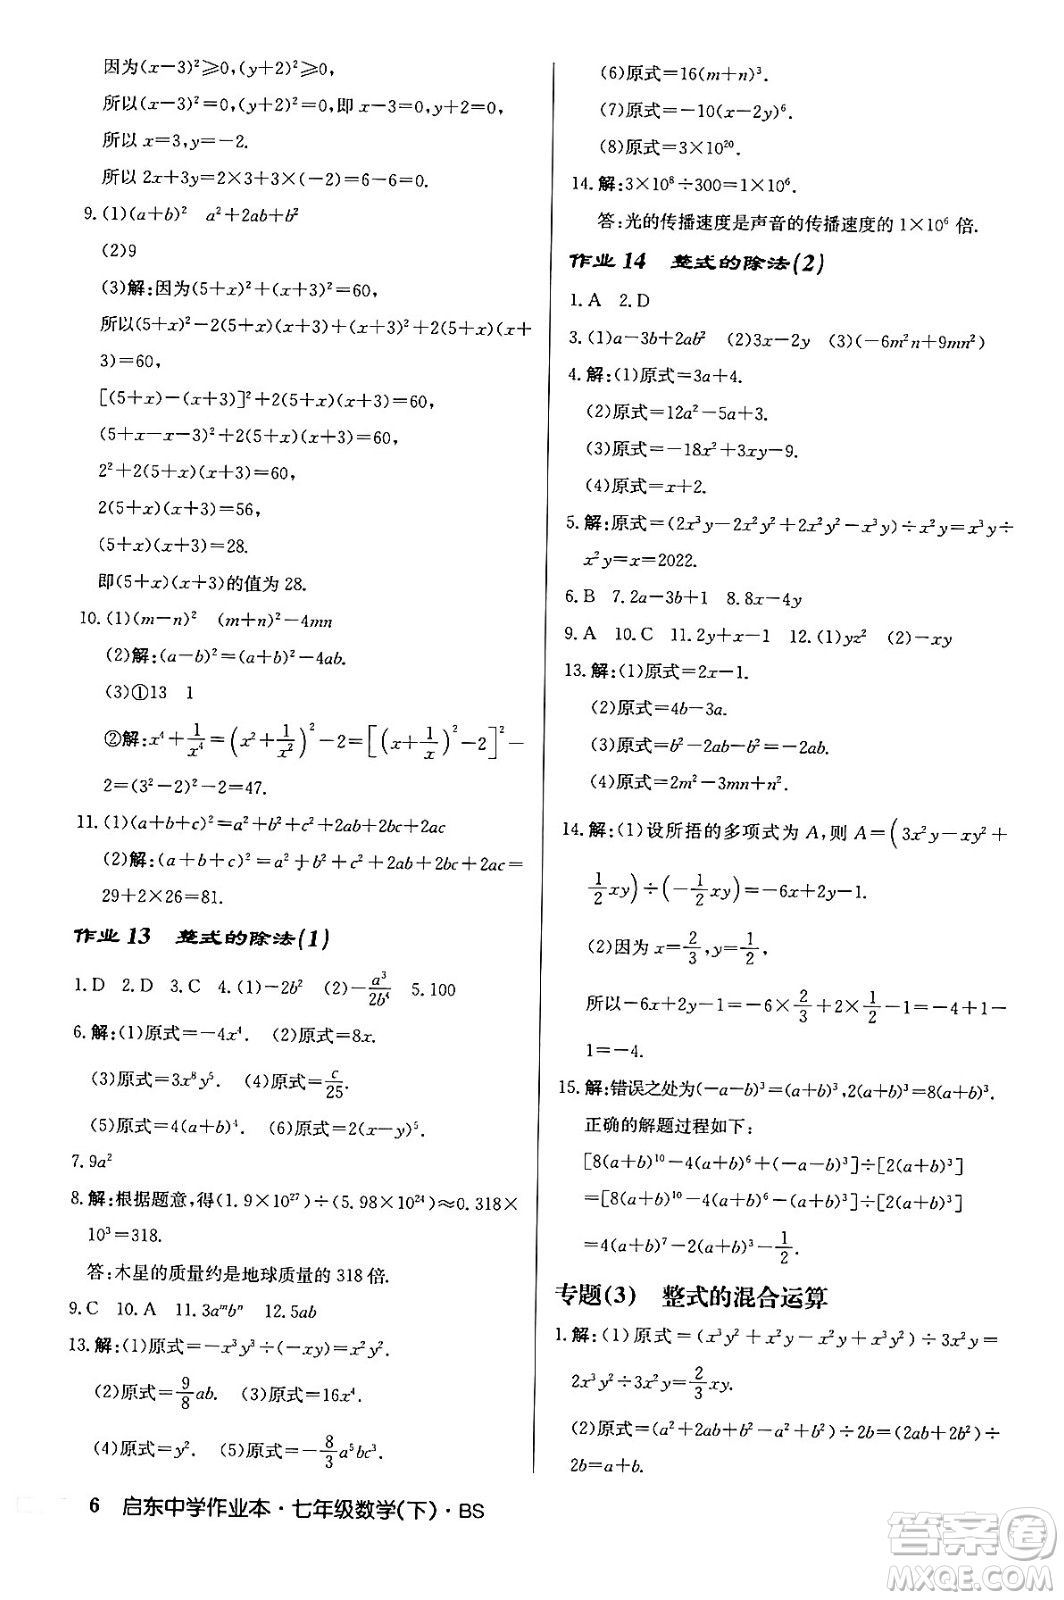 因为(x-3)²≥0,(y+2)²≥0,
所以(x-3)²=0,(y+2)²=0,即x-3=0,y+2=0,
所以x=3,y=-2.
所以2x+3y=2×3+3×(-2)=6-6=0.
9.(1)(a+b)² a²+2ab+b²
(2)9
(3)解:因为(5+x)²+(x+3)²=60,
所以(5+x)²-2(5+x)(x+3)+(x+3)²+2(5+x)(x+
3)=60,
[(5+x)-(x+3)]²+2(5+x)(x+3)=60,
(5+x-x-3)²+2(5+x)(x+3)=60,
2²+2(5+x)(x+3)=60,
2(5+x)(x+3)=56,
(5+x)(x+3)=28.
即(5+x)(x+3)的值为28.
10.(1)(m-n)² (m+n)²-4mn
(2)解:(a-b)²=(a+b)²-4ab.
(3)①13 1
②解:x⁴+1/x⁴=(x²+1/x²)²-2=[(x+1/x)²-2]²-
2=(3²-2)²-2=47.
11.(1)(a+b+c)²=a²+b²+c²+2ab+2bc+2ac
(2)解:(a+b+c)²=a²+b²+c²+2ab+2bc+2ac=
29+2×26=81.
作业13 整式的除法(1)
1.D 2.D 3.C 4.(1)-2b² (2)-a³/2b⁴ 5.100
6.解:(1)原式=-4x⁴. (2)原式=8x.
(3)原式=3x⁸y⁵. (4)原式=c/25.
(5)原式=4(a+b)⁴. (6)原式=2(x-y)⁵.
7.9a²
8.解:根据题意,得(1.9×10²⁷)÷(5.98×10²⁴)≈0.318×
10³=318.
答:木星的质量约是地球质量的318倍.
9.C 10.A 11.3aᵐbⁿ 12.5ab
13.解:(1)原式=-x³y³÷(-xy)=x²y².
(2)原式=9/8ab. (3)原式=16x⁴.
(4)原式=y². (5)原式=-8/3a⁵bc³.
(6)原式=16(m+n)³.
(7)原式=-10(x-2y)⁶.
(8)原式=3×10²⁰.
14.解:3×10⁸÷300=1×10⁶.
答:光的传播速度是声音的传播速度的1×10⁶倍.
作业14 整式的除法(2)
1.A 2.D
3.(1)a-3b+2ab² (2)3x-2y (3)(-6m²n+9mn²)
4.解:(1)原式=3a+4.
(2)原式=12a²-5a+3.
(3)原式=-18x²+3xy-9.
(4)原式=x+2.
5.解:原式=(2x³y-2x²y²+2x²y²-x³y)÷x²y=x³y÷
x²y=x=2022.
6.B 7.2a-3b+1 8.8x-4y
9.A 10.C 11.2y+x-1 12.(1)yz² (2)-xy
13.解:(1)原式=2x-1.
(2)原式=4b-3a.
(3)原式=b²-2ab-b²=-2ab.
(4)原式=2m²-3mn+n².
14.解:(1)设所捂的多项式为A,则A=(3x²y-xy²+
1/2xy)÷(-1/2xy)=-6x+2y-1.
(2)因为x=2/3,y=1/2,
所以-6x+2y-1=-6×2/3+2×1/2-1=-4+1-
1=-4.
15.解:错误之处为(-a-b)³=(a+b)³,2(a+b)³=8(a+b)³.
正确的解题过程如下:
[8(a+b)¹⁰-4(a+b)⁶+(-a-b)³]÷[2(a+b)³]
=[8(a+b)¹⁰-4(a+b)⁶-(a+b)³]÷[2(a+b)³]
=4(a+b)⁷-2(a+b)³-1/2.
专题(3) 整式的混合运算
1.解:(1)原式=(x³y²+x²y-x²y+x³y²)÷3x²y=
2x³y²÷3x²y=2/3xy.
(2)原式=(a²+2ab+b²-a²+b²)÷2b=(2ab+2b²)÷
2b=a+b.
6 启东中学作业本·七年级数学(下)·BS
答案圈